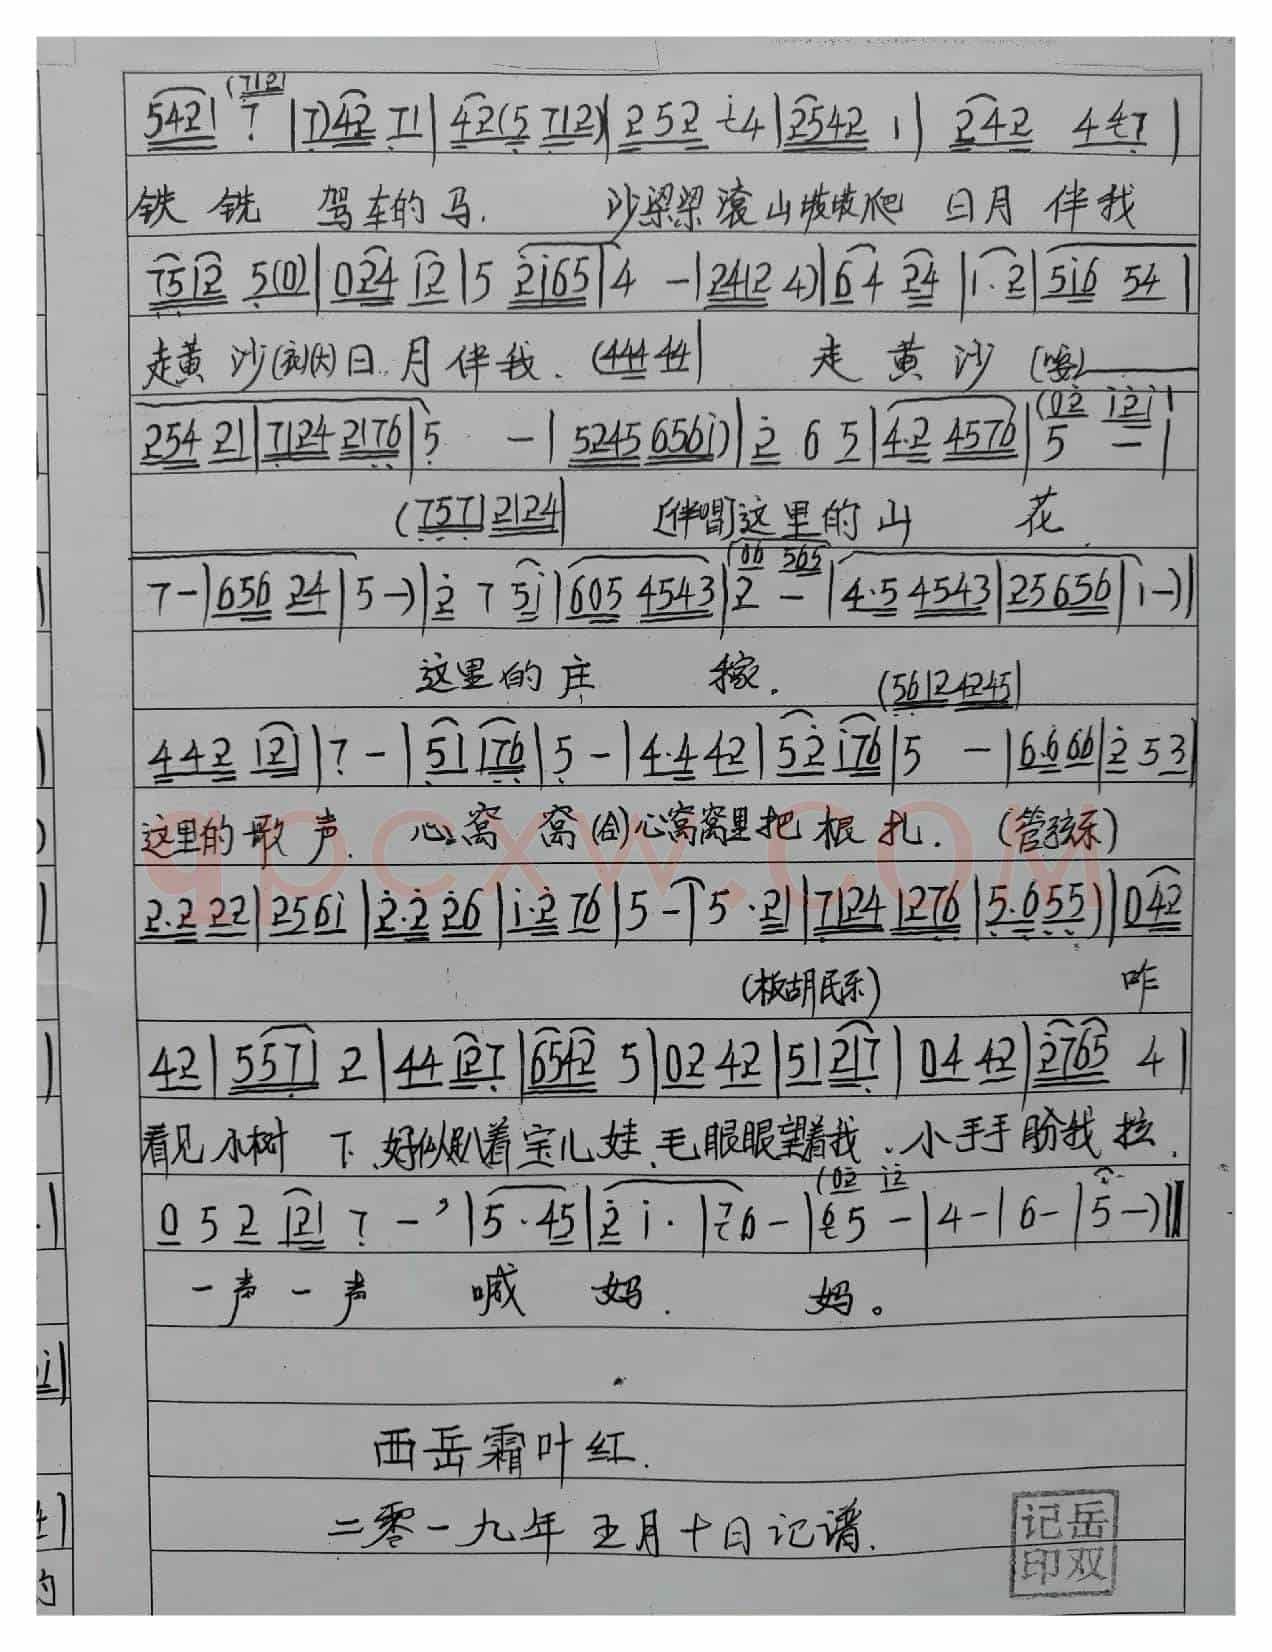 (712)
5421 7 | 7)42 71 | 42(5 712) | 252 i-4 | 2542 1 | 242 447 |
铁 铣 驾车的马. 沙梁梁滚山坡坡爬 日月伴我
7512 5(0) | 024 12 | 5 2i65 | 4 - | 2412 4) | 64 24 | 1·2 | 5i6 54 |
走黄沙 日月伴我. (444 44| 走黄沙
(02 i2i |
254 21 | 7124 2176 | 5 - | 5245 656i) | 2 6 5 | 4·2 4576 | 5 - |
(7571 2124| [伴唱]这里的山 花
(06 565
7 - | 656 24 | 5 -) | 2 7 5i | 605 4543 | 2 - | 4·5 4543 | 25656 | i -) |
这里的庄 稼. (5612 4245|
442 121 | 7 - | 51 176 | 5 - | 4·4 42 | 52 i76 | 5 - | 6·6 66 | 2 53 |
这里的歌声. 心窝窝(合)心窝窝里把根扎. (管弦乐)
qpcxw.com
2·2 22 | 256i | 2·2 26 | i·2 76 | 5 - | 5·21 | 7124 1276 | 5·6 55) | 042
(板胡民乐) 咋
42 | 5571 2 | 44 127 | 6542 5 | 02 42 | 51 217 | 04 42 | 2765 4 |
看见小树下、好似趴着宝儿娃、毛眼眼望着我、小手手盼我拉.
(02 i2
0 5 2 121 7 - ’ | 5·45 | 2 i· | 76 - | 65 - | 4 - | 6 - | 5 -) |
一声一声 喊 妈. 妈。
西岳霜叶红.
二零一九年五月十日记谱.
记岳
印双